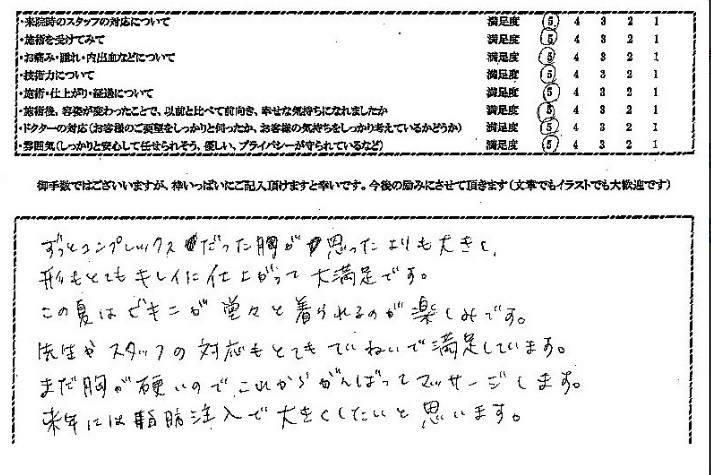 ・来院時のスタッフの対応について 満足度 5 4 3 2 1
・施術を受けてみて 満足度 5 4 3 2 1
・お痛み・腫れ・内出血などについて 満足度 5 4 3 2 1
・技術力について 満足度 5 4 3 2 1
・施術・仕上がり・経過について 満足度 5 4 3 2 1
・施術後、容姿が変わったことで、以前と比べて前向き、幸せな気持ちになれましたか 満足度 5 4 3 2 1
・ドクターの対応(お客様のご要望をしっかりと伺ったか、お客様の気持ちをしっかり考えているかどうか) 満足度 5 4 3 2 1
・雰囲気(しっかりと安心して任せられそう、優しい、プライバシーが守られているなど) 満足度 5 4 3 2 1
御手数ではございいますが、枠いっぱいにご記入頂けますと幸いです。今後の励みにさせて頂きます(文章でもイラストでも大歓迎です)
ずっとコンプレックスだった胸が思ったよりも大きく、
形もとてもキレイに仕上がって大満足です。
この夏はビキニが堂々と着られるのが楽しみです。
先生やスタッフの対応もとてもていねいで満足しています。
まだ胸が硬いのでこれからがんばってマッサージします。
来年には脂肪注入で大きくしたいと思います。